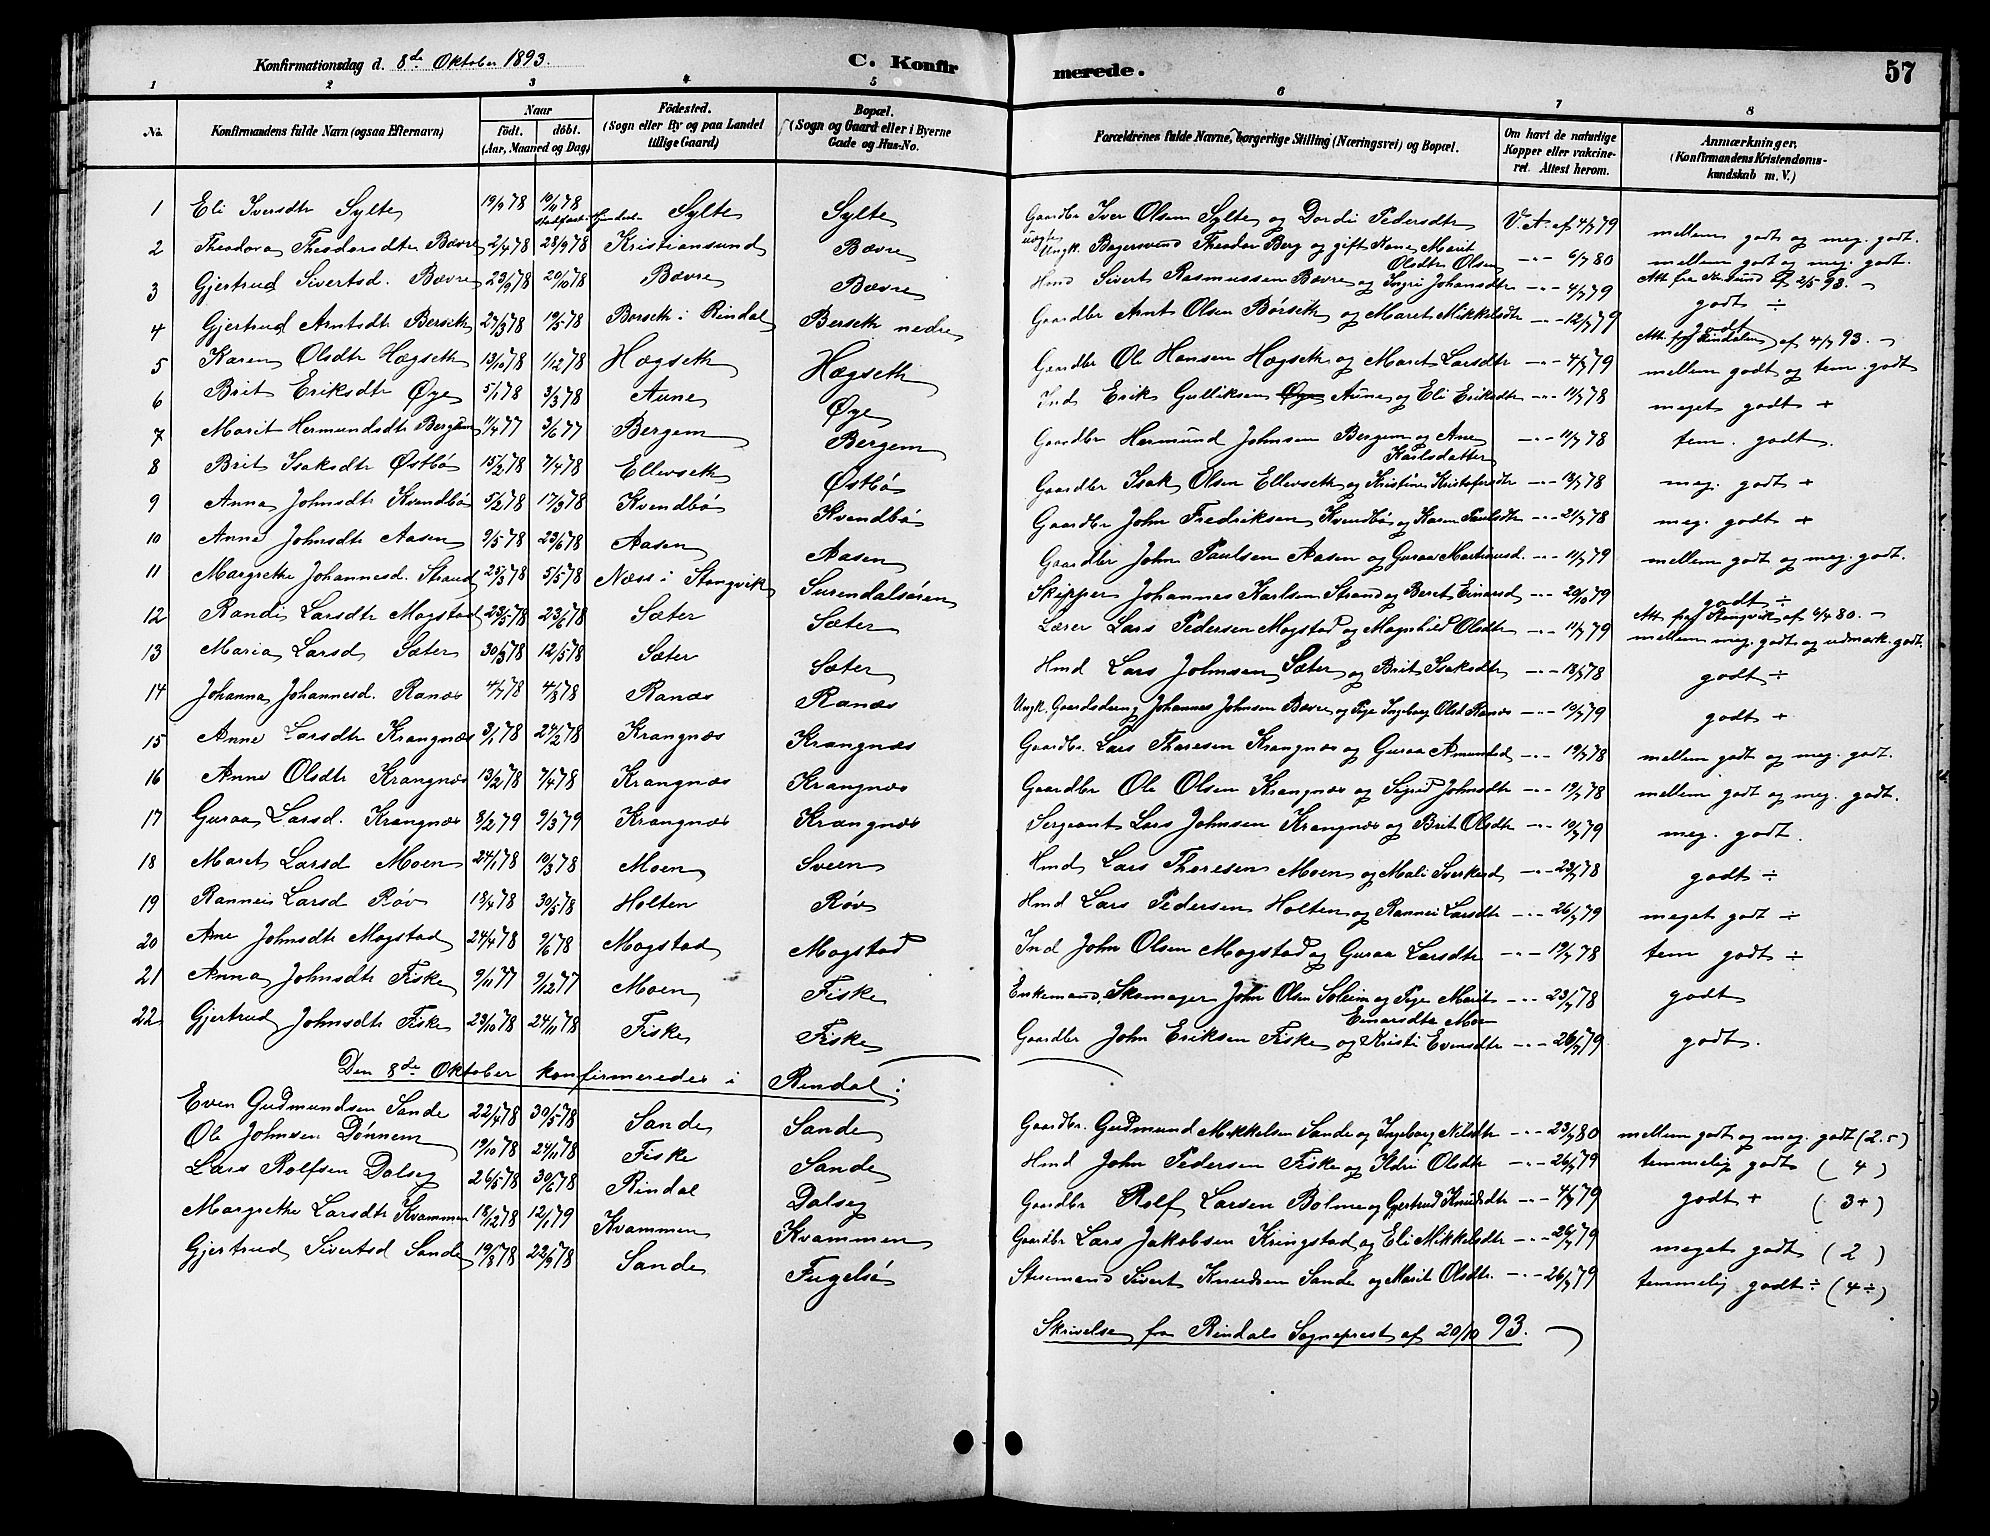 Konfirmationsdag d. 8de Oktober 1893.
C. Konfir
merede.
57
1 2 3 4 5 6 7 8
No. Konfirmandens fulde Navn (ogsaa Efternavn) Naar født. døbt. (Aar, Maaned og Dag) Fødested. (Sogn eller By og paa Landet tillige Gaard) Bopæl. (Sogn og Gaard eller i Byerne Gade og Hus-No. Forældrenes fulde Navne, borgerlige Stilling (Næringsvei) og Bopæl. Om havt de naturlige Kopper eller vakcineret. Attest herom. Anmærkninger. (Konfirmandens Kristendomskundskab m. V.)
1 Eli Iversdtr Sylte 19/9 78 10/11 78 Sylte Sylte Gaardbr Iver Olsen Sylte og Dordi Pedersdtr V. A. af 4/7 79 mellem godt og meg. godt.
2 Theodora Theodorsdtr Bævre 2/7 78 28/9 78 Kristiansund Bævre Ungk. Bagersvend Theodor Berg og gift Kone Marit Olsdtr Olsen -"- 6/7 80 mellem godt og meg. godt.
3 Gjertrud Sivertsd. Bævre 23/9 78 20/10 78 Bævre Bævre Hmd Sivert Rasmussen Bævre og Ingri Johansdtr -"- 4/7 79 godt ÷
4 Gjertrud Arntsdtr Berseth 27/3 78 19/5 78 Børseth i Rindal Berseth nedre Gaardbr Arnt Olsen Børseth og Maret Mikkelsdtr -"- 12/7 79 godt
Att. fra Rindalen af 4/7 93.
5 Karen Olsdtr Hægseth 13/10 78 1/12 78 Hægseth Hægseth Gaardbr Ole Hansen Hægseth og Maret Larsdtr -"- 4/7 79 mellem godt og tem. godt
6 Brit Eriksdtr Øye 5/1 78 3/3 78 Aune Øye Ind Erik Gulliksen Øye Aune og Eli Eriksdtr -"- 11/7 78 meget godt +
7 Marit Hermundsdtr Bergem 11/4 77 3/6 77 Bergem Bergem Gaardbr Hermund Johnsen Bergem og Ane Karlsdatter -"- 11/7 78 tem. godt.
8 Brit Isaksdtr Østbø 15/2 78 7/4 78 Ellevseth Østbø Gaardbr Isak Olsen Ellevseth og Kristine Kristofersdtr -"- 13/7 78 meg. godt +
9 Anna Johnsdtr Kvendbø 5/2 78 17/3 78 Kvendbø Kvendbø Gaardbr John Fredriksen Kvendbø og Karen Paulsdtr -"- 21/7 78 meg. godt +
10 Anne Johnsdtr Aasen 9/5 78 23/6 78 Aasen Aasen Gaardbr John Paulsen Aasen og Guraa Martinusd. -"- 11/7 79 mellem godt og meg. godt.
11 Margrethe Johannesd. Strand 25/3 78 5/5 78 Næss i Stangvik Surendalsøren Skipper Johannes Karlsen Strand og Beret Einarsd -"- 20/10 79 godt ÷
Att. fra Stangvik af 6/4 80.
12 Randi Larsdtr Mogstad 22/5 78 23/6 78 Sæter Sæter Lærer Lars Pedersen Mogstad og Magnhild Olsdtr -"- 11/7 79 mellem meg. godt og udmærk. godt.
13 Maria Larsd Sæter 30/3 78 12/5 78 Sæter Sæter Hmd Lars Johnsen Sæter og Brit Isaksdtr -"- 18/7 78 godt ÷
14 Johanna Johannesd. Ranæs 4/7 78 4/8 78 Ranæs Ranæs Ungk. Gaardsdreng Johannes Johnsen Bævre og Pige Ingeborg Olsd Ranæs -"- 10/7 79 godt +
15 Anne Larsdtr Krangnæs 3/1 78 24/2 78 Krangnæs Krangnæs Gaardbr. Lars Thoresen Krangnæs og Guraa Amundsd -"- 19/7 78 mellem godt og meg. godt.
16 Anne Olsdtr Krangnæs 13/2 78 7/4 78 Krangnæs Krangnæs Gaardbr Ole Olsen Krangnæs og Sigrid Johnsdtr -"- 19/7 78 mellem godt og meg. godt.
17 Guraa Larsd. Krangnæs 8/2 79 9/3 79 Krangnæs Krangnæs Sergeant Lars Johnsen Krangnæs og Brit Olsdtr -"- 10/7 79 meg. godt.
18 Maret Larsd Moen 24/1 78 10/3 78 Moen Sveen Hmd Lars Thoresen Moen og Mali Sverkesd -"- 23/7 78 godt ÷
19 Rannei Larsd Røv 13/4 78 30/5 78 Holten Røv Hmd Lars Pedersen Holten og Rannei Larsdtr -"- 26/7 79 meget godt ÷
20 Ane Johnsdtr Mogstad 24/4 78 9/6 78 Mogstad Mogstad Ind John Olsen Mogstad og Guraa Larsdtr -"- 19/7 78 tem godt ÷
21 Anna Johnsdtr Fiske 9/11 77 9/12 77 Moen Fiske Enkemand, Skomager John Olsen Soleim og Pige Marit Einarsdtr Moen -"- 23/7 78 godt
22 Gjertrud Johnsdtr Fiske 23/10 78 24/11 78 Fiske Fiske Gaardbr John Eriksen Fiske og Kristi Evensdtr -"- 26/7 79 godt.
Den 8de Oktober konfirmeredes i Rindal:
Even Gudmundsen Sande 22/4 78 30/5 78 Sande Sande Gaardbr. Gudmund Mikkelsen Sande og Ingeborg Nilsdtr -"- 23/7 80 mellem godt og meg. godt (2.5)
Ole Johnsen Dønnem 19/10 78 24/11 78 Fiske Sande Hmd John Pedersen Fiske og Ildri Olsdtr -"- 26/7 79 temmelig godt (4)
Lars Rolfsen Dalseg 26/5 78 30/6 78 Rindal Dalseg Gaardbr Rolf Larsen Bolme og Gjertrud Knudsdtr -"- 4/7 79 godt + (3+)
Margrethe Larsdtr Kvammen 18/12 78 12/1 79 Kvammen Kvammen Gaardbr Lars Jakobsen Kringstad og Eli Mikkelsdtr -"- 26/7 79 meget godt (2)
Gjertrud Sivertsd Sande 19/8 78 22/9 78 Sande Fugelsø Stuemand Sivert Knudsen Sande og Marit Olsdtr. -"- 26/7 79 temmelig godt ÷ (4÷)
Skrivelse fra Rindals Sogneprest af 20/10 93.